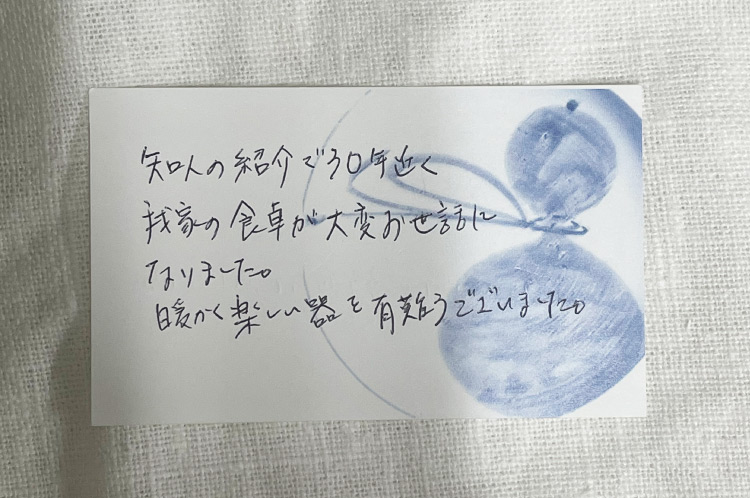 知人の紹介で30年近く
我家の食卓が大変お世話に
なりました。
暖かく楽しい器を有難うございました。